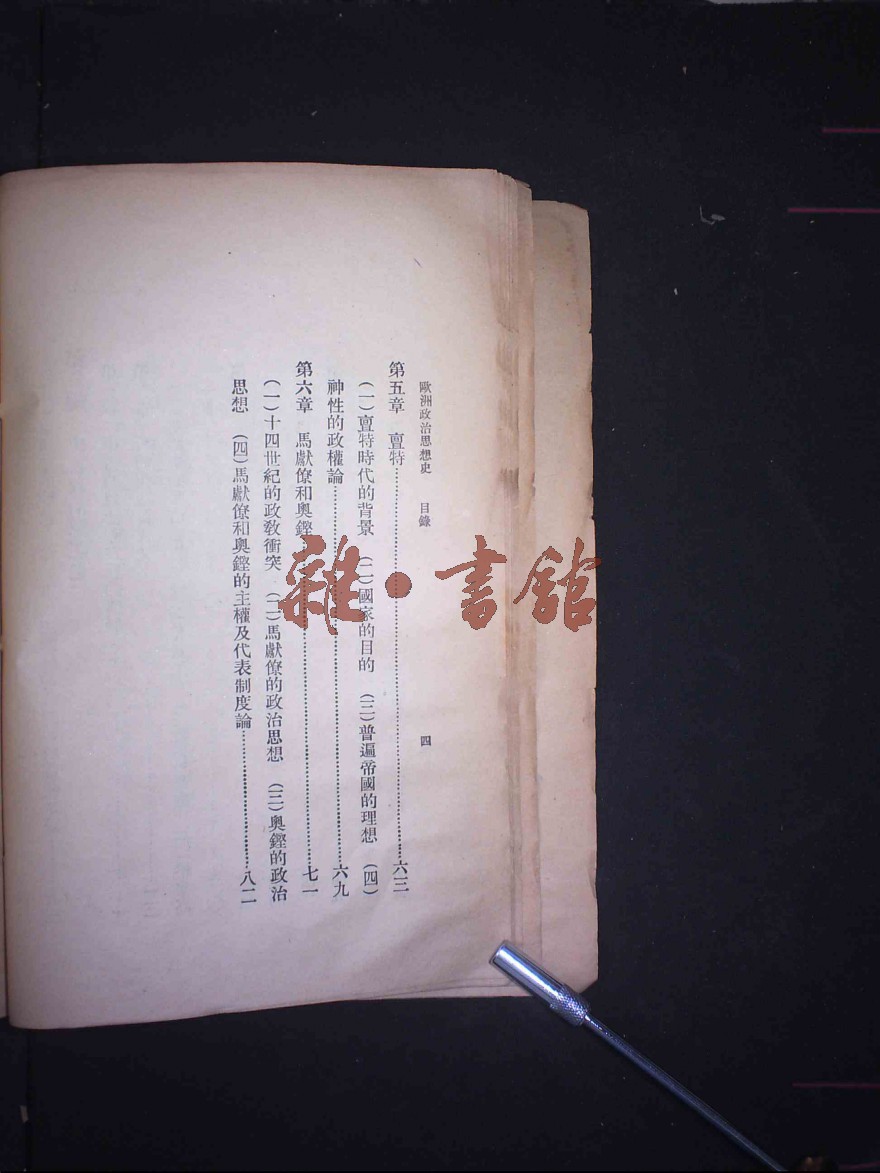 歐洲政治思想史 目錄 四
第五章 亶特……六三
(一)亶特時代的背景 (二)國家的目的 (三)普遍帝國的理想 (四)
神性的政權論……六九
第六章 馬獻僚和奧鏗……七一
(一)十四世紀的政教衝突 (二)馬獻僚的政治思想 (三)奧鏗的政治
思想 (四)馬獻僚和奧鏗的主權及代表制度論……八二
雜·書館